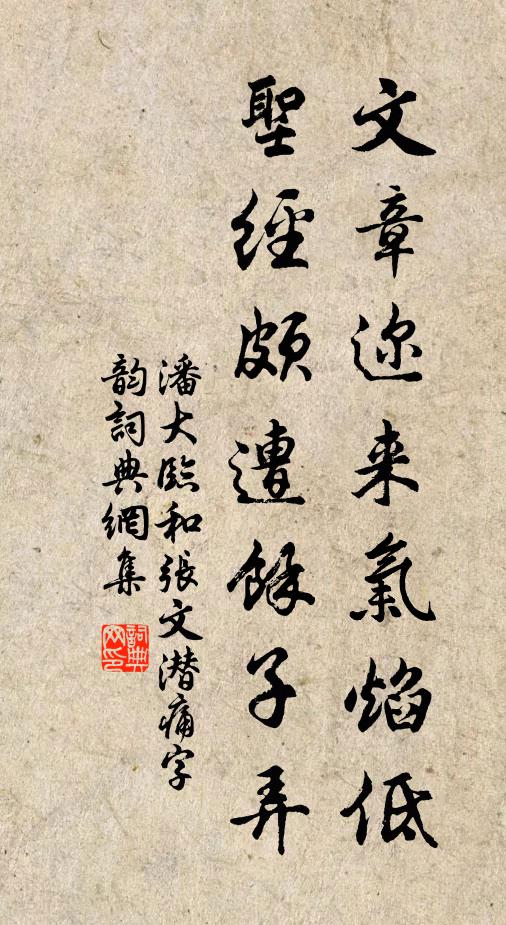 文章迩来氣焰低
聖經頗遭餘子弄
潘大臨和張文潜痛字
韵詞典網集
詞典网印